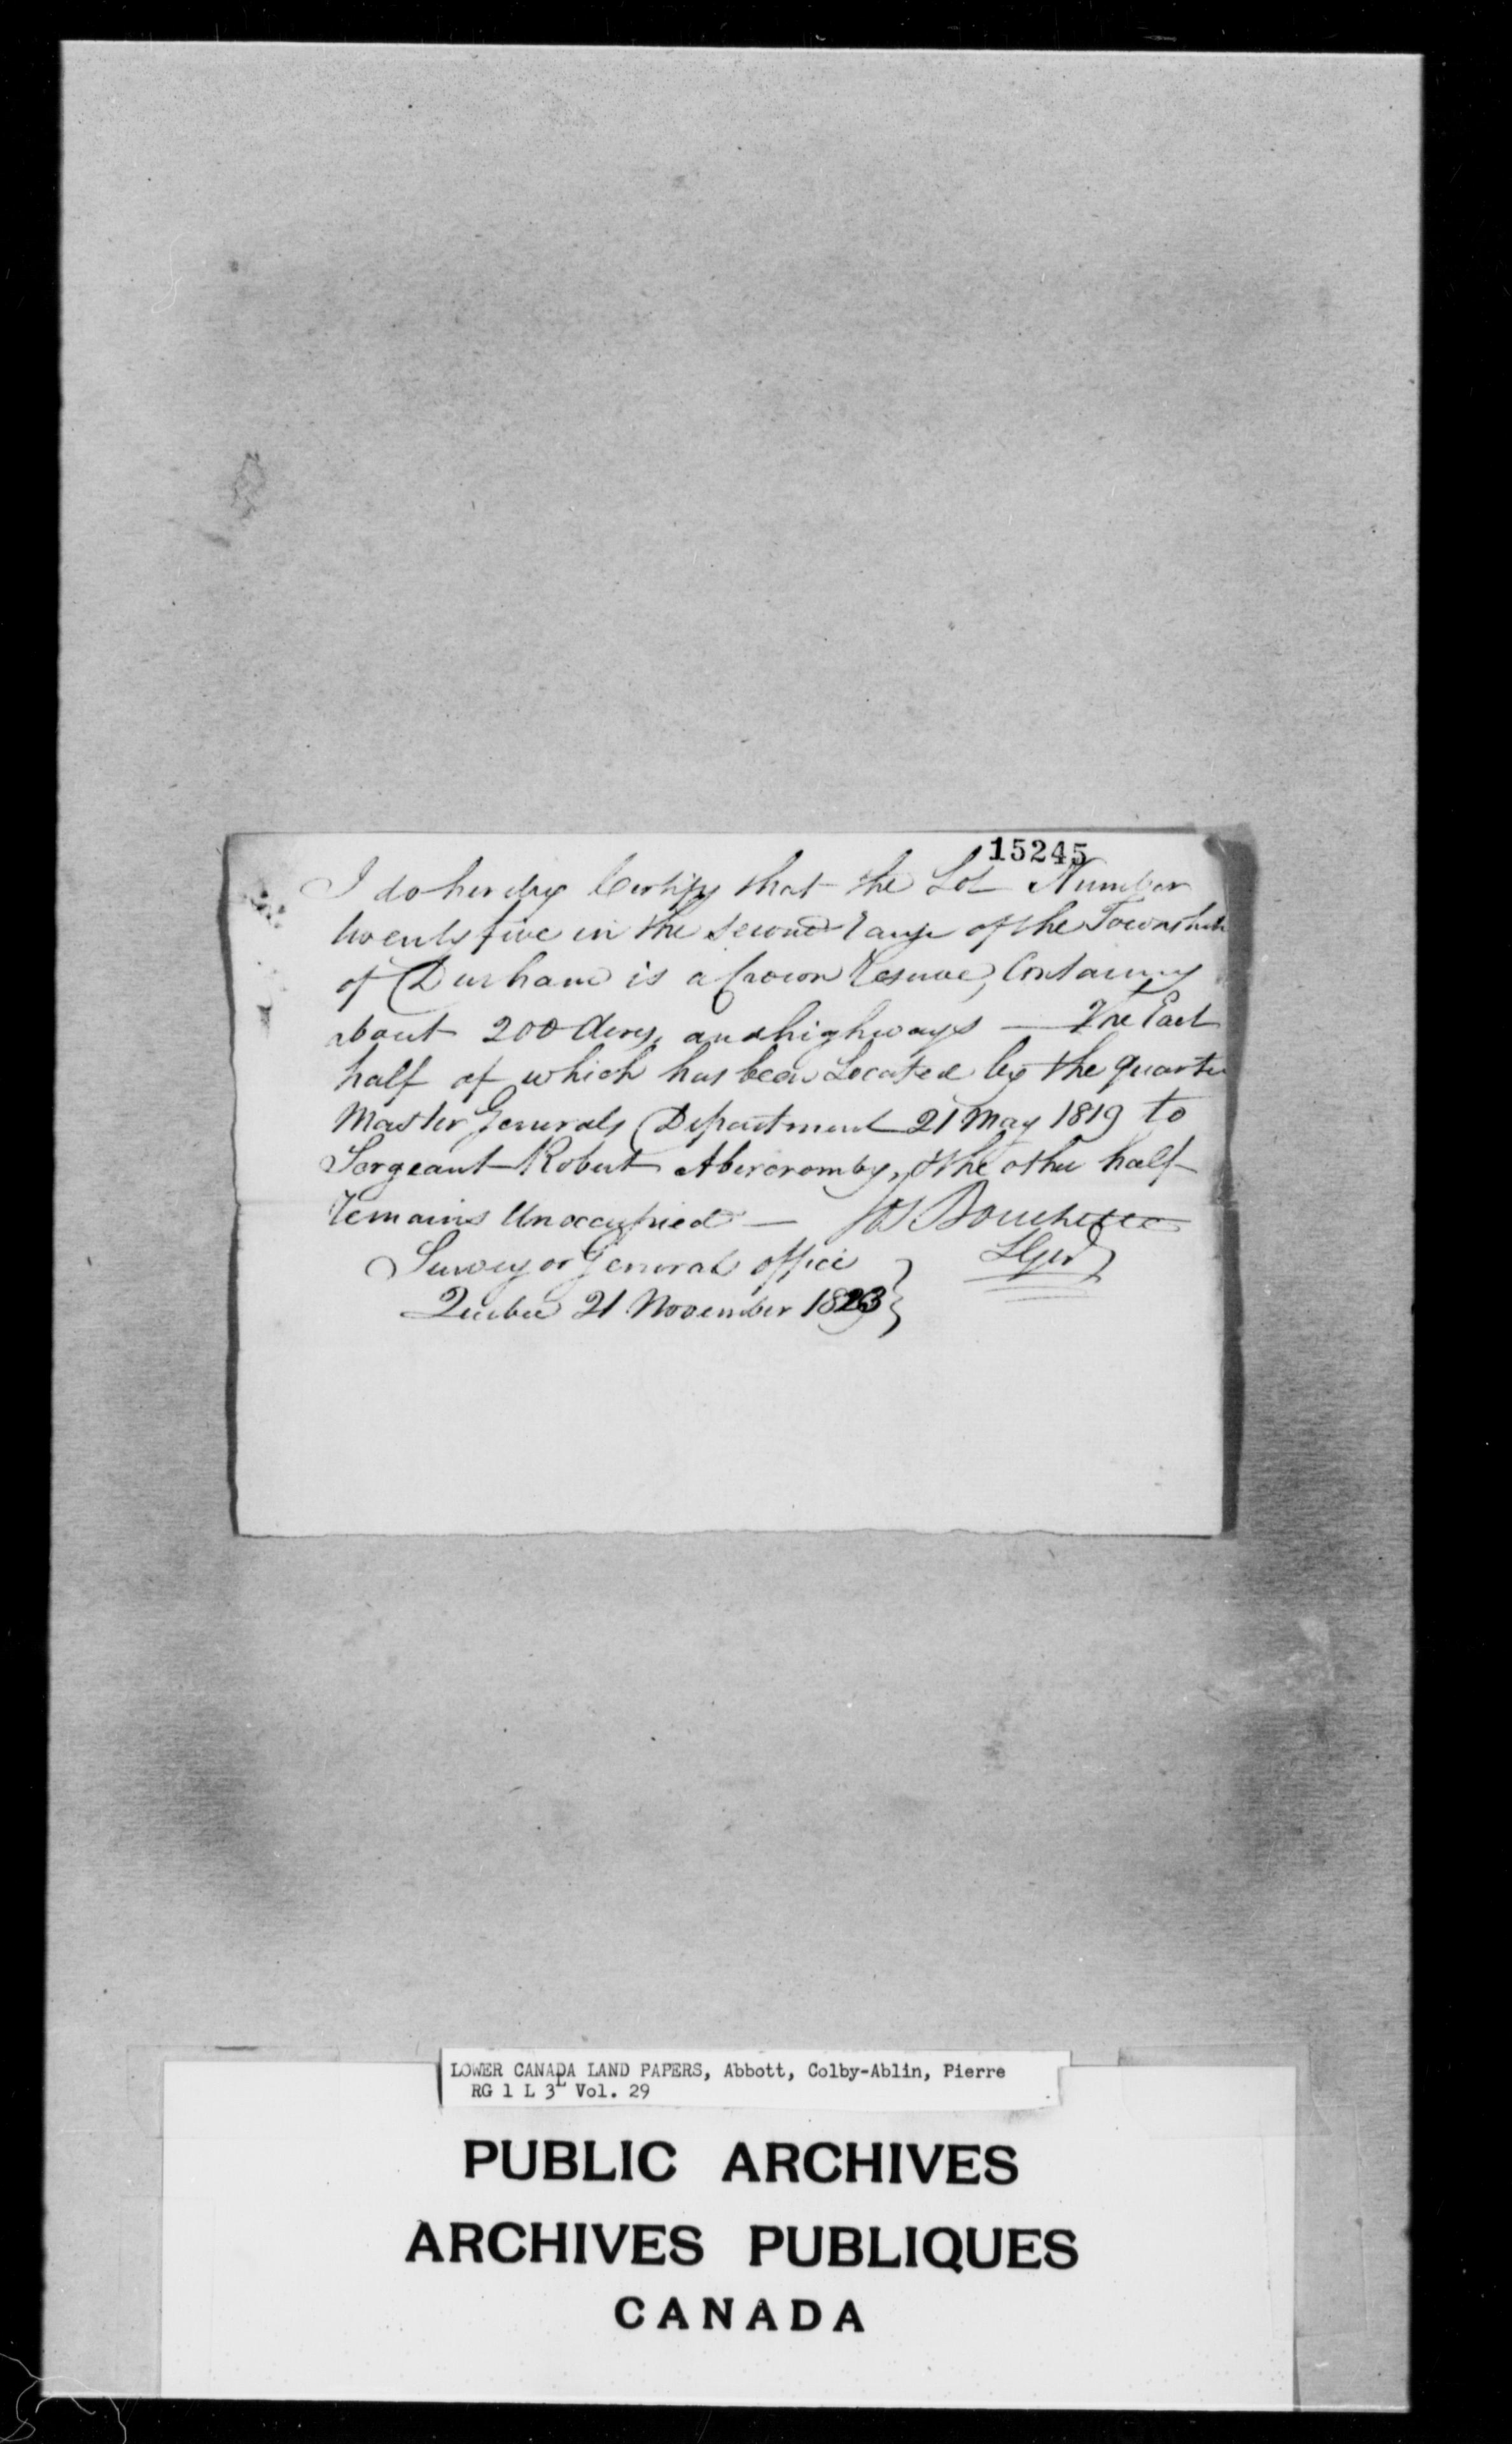 15245
I do hereby Certify that the Lot Number
twenty five in the second range of the Township
of Durham is a Crown Reserve, Containing
about 200 Acres, and highways — The East
half of which has been Located by the quarter
Master Generals Department 21 May 1819 to
Sergeant Robert Abercromby, & the other half
remains Unoccupied — Jos Bouchette
Surveyor General office
Quebec 21 November 1823
LOWER CANADA LAND PAPERS, Abbott, Colby-Ablin, Pierre
RG 1 L 3L Vol. 29
PUBLIC ARCHIVES
ARCHIVES PUBLIQUES
CANADA